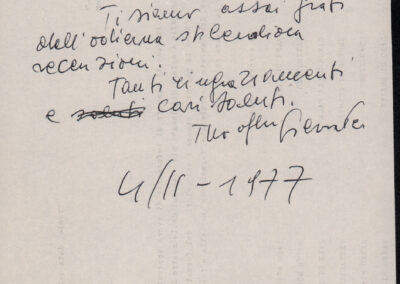 Ti siamo assai grati
dell'odierna splendida
recensioni.
Tanti ringraziamenti
e saluti cari saluti.
4/II - 1977